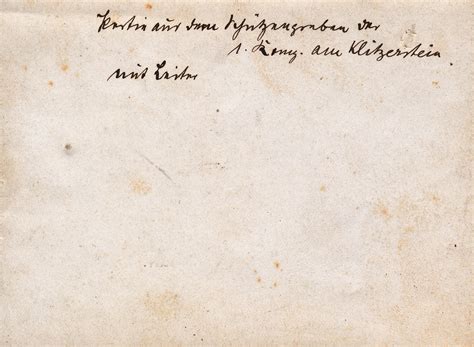 Partie aus dem Schützengraben der
1. Komp. am Klitzerstein
mit Leiter